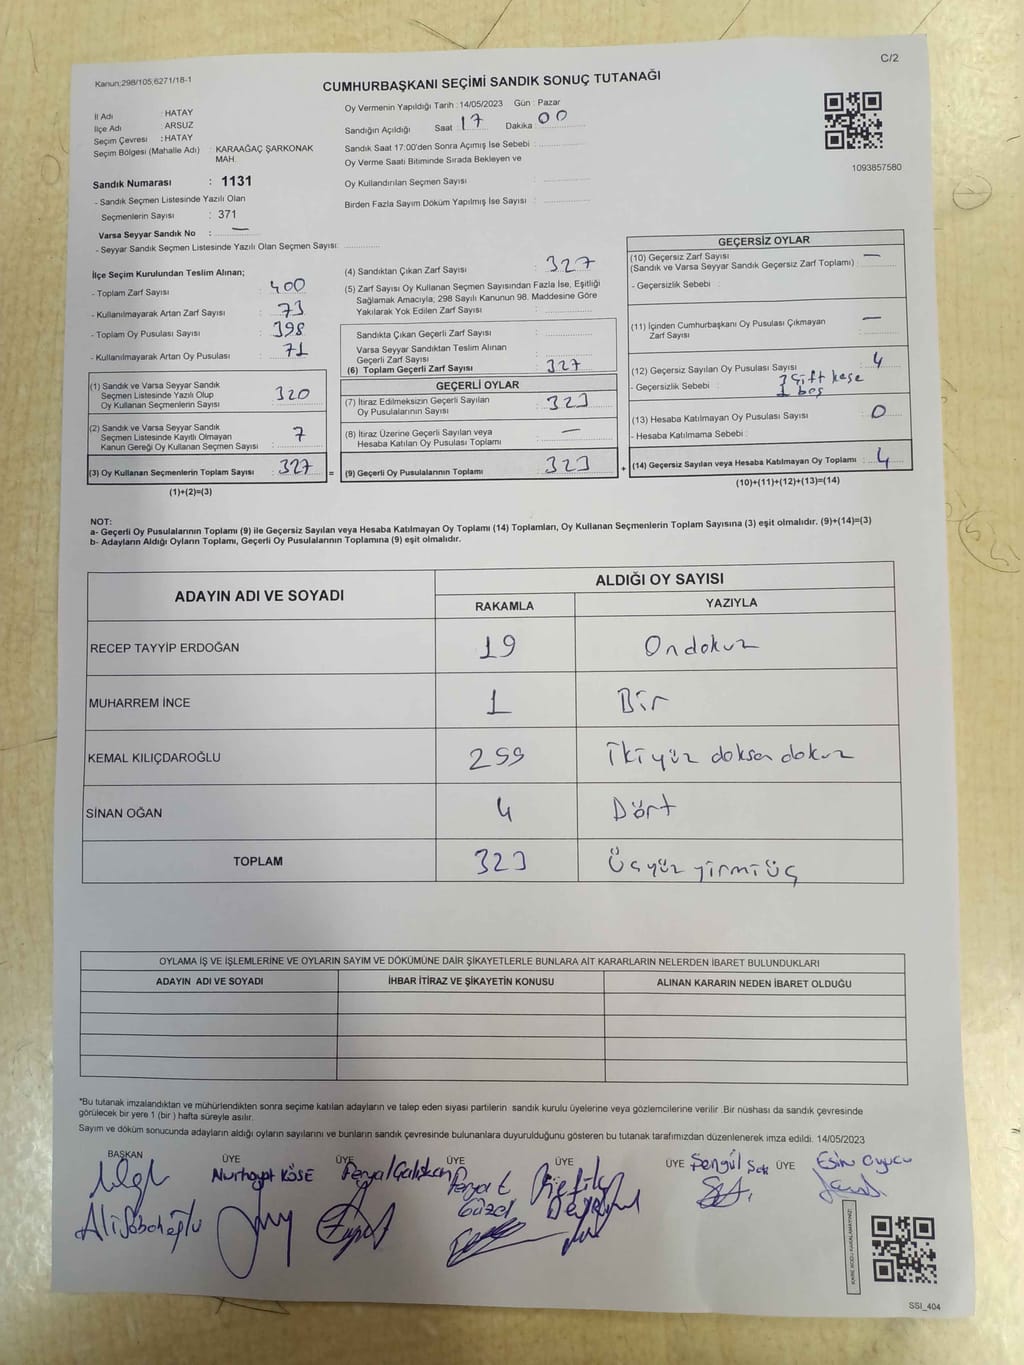 Kanun:298/105;6271/18-1
C/2
CUMHURBAŞKANI SEÇİMİ SANDIK SONUÇ TUTANAĞI
İl Adı : HATAY
İlçe Adı : ARSUZ
Seçim Çevresi : HATAY
Seçim Bölgesi (Mahalle Adı) : KARAAĞAÇ ŞARKONAK
MAH.
Sandık Numarası : 1131
- Sandık Seçmen Listesinde Yazılı Olan
Seçmenlerin Sayısı : 371
Varsa Seyyar Sandık No : —
- Seyyar Sandık Seçmen Listesinde Yazılı Olan Seçmen Sayısı:
Oy Vermenin Yapıldığı Tarih : 14/05/2023 Gün : Pazar
Sandığın Açıldığı Saat : 17 Dakika : 00
Sandık Saat 17:00'den Sonra Açımış İse Sebebi :
Oy Verme Saati Bitiminde Sırada Bekleyen ve
Oy Kullandırılan Seçmen Sayısı :
Birden Fazla Sayım Döküm Yapılmış İse Sayısı :
1093857580
İlçe Seçim Kurulundan Teslim Alınan;
- Toplam Zarf Sayısı : 400
- Kullanılmayarak Artan Zarf Sayısı : 73
- Toplam Oy Pusulası Sayısı : 398
- Kullanılmayarak Artan Oy Pusulası : 71
(1) Sandık ve Varsa Seyyar Sandık
Seçmen Listesinde Yazılı Olup
Oy Kullanan Seçmenlerin Sayısı : 320
(2) Sandık ve Varsa Seyyar Sandık
Seçmen Listesinde Kayıtlı Olmayan
Kanun Gereği Oy Kullanan Seçmen Sayısı : 7
(3) Oy Kullanan Seçmenlerin Toplam Sayısı : 327 =
(1)+(2)=(3)
(4) Sandıktan Çıkan Zarf Sayısı : 327
(5) Zarf Sayısı Oy Kullanan Seçmen Sayısından Fazla İse, Eşitliği
Sağlamak Amacıyla; 298 Sayılı Kanunun 98. Maddesine Göre
Yakılarak Yok Edilen Zarf Sayısı :
Sandıkta Çıkan Geçerli Zarf Sayısı :
Varsa Seyyar Sandıktan Teslim Alınan
Geçerli Zarf Sayısı :
(6) Toplam Geçerli Zarf Sayısı : 327
GEÇERLİ OYLAR
(7) İtiraz Edilmeksizin Geçerli Sayılan
Oy Pusulalarının Sayısı : 323
(8) İtiraz Üzerine Geçerli Sayılan veya
Hesaba Katılan Oy Pusulası Toplamı : —
(9) Geçerli Oy Pusulalarının Toplamı : 323 +
GEÇERSİZ OYLAR
(10) Geçersiz Zarf Sayısı : —
(Sandık ve Varsa Seyyar Sandık Geçersiz Zarf Toplamı)
- Geçersizlik Sebebi :
(11) İçinden Cumhurbaşkanı Oy Pusulası Çıkmayan
Zarf Sayısı : —
(12) Geçersiz Sayılan Oy Pusulası Sayısı : 4
- Geçersizlik Sebebi : 3 Çift kaşe
1 boş
(13) Hesaba Katılmayan Oy Pusulası Sayısı : 0
- Hesaba Katılmama Sebebi :
(14) Geçersiz Sayılan veya Hesaba Katılmayan Oy Toplamı : 4
(10)+(11)+(12)+(13)=(14)
NOT:
a- Geçerli Oy Pusulalarının Toplamı (9) ile Geçersiz Sayılan veya Hesaba Katılmayan Oy Toplamı (14) Toplamları, Oy Kullanan Seçmenlerin Toplam Sayısına (3) eşit olmalıdır. (9)+(14)=(3)
b- Adayların Aldığı Oyların Toplamı, Geçerli Oy Pusulalarının Toplamına (9) eşit olmalıdır.
ADAYIN ADI VE SOYADI
ALDIĞI OY SAYISI
RAKAMLA YAZIYLA
RECEP TAYYİP ERDOĞAN 19 Ondokuz
MUHARREM İNCE 1 Bir
KEMAL KILIÇDAROĞLU 299 İkiyüz doksan dokuz
SİNAN OĞAN 4 Dört
TOPLAM 323 Üçyüz yirmi üç
OYLAMA İŞ VE İŞLEMLERİNE VE OYLARIN SAYIM VE DÖKÜMÜNE DAİR ŞİKAYETLERLE BUNLARA AİT KARARLARIN NELERDEN İBARET BULUNDUKLARI
ADAYIN ADI VE SOYADI İHBAR İTİRAZ VE ŞİKAYETİN KONUSU ALINAN KARARIN NEDEN İBARET OLDUĞU
*Bu tutanak imzalandıktan ve mühürlendikten sonra seçime katılan adayların ve talep eden siyasi partilerin sandık kurulu üyelerine veya gözlemcilerine verilir .Bir nüshası da sandık çevresinde
görülecek bir yere 1 (bir ) hafta süreyle asılır.
Sayım ve döküm sonucunda adayların aldığı oyların sayılarını ve bunların sandık çevresinde bulunanlara duyurulduğunu gösteren bu tutanak tarafımızdan düzenlenerek imza edildi. 14/05/2023
BAŞKAN ÜYE ÜYE ÜYE ÜYE ÜYE ÜYE
Nurhayat KÖSE
Feryal Çalışkan
Derya
Güzel
Şengül
Esin Oyucu
SSI_404